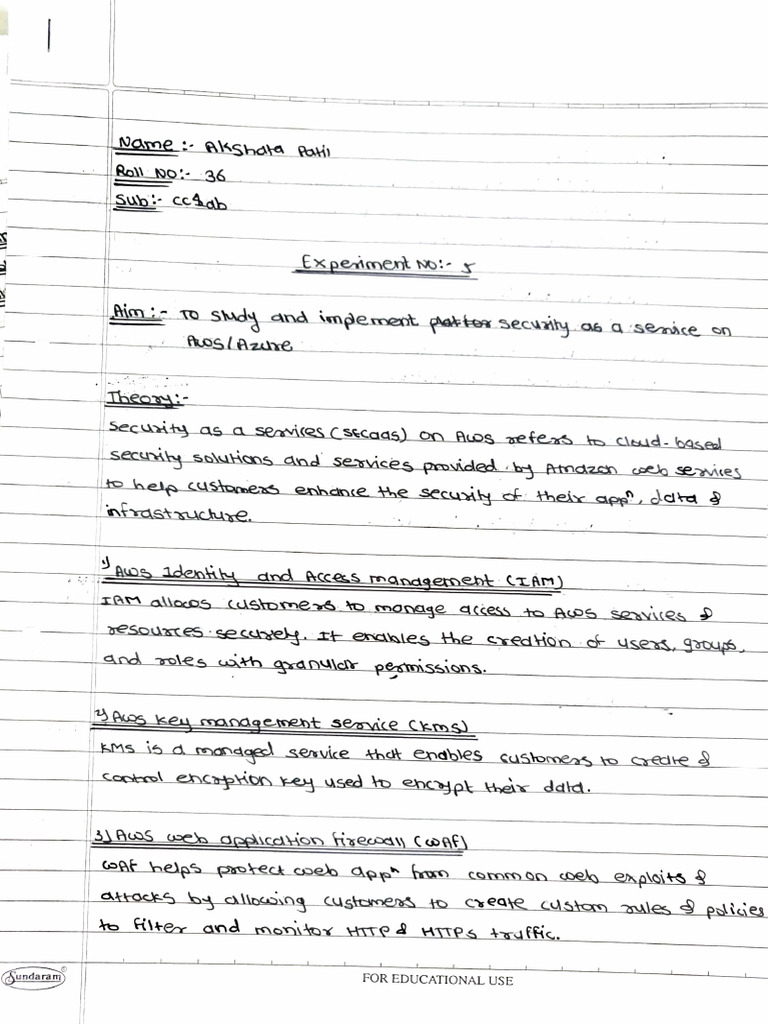 Name :- Akshata Patil
Roll No:- 36
Sub:- CCLab
Experiment No:- 5
Aim :- To study and implement security as a service on
AWS/Azure
Theory:-
Security as a services (SECaaS) on AWS refers to cloud-based
security solutions and services provided by Amazon web services
to help customers enhance the security of their appⁿ, data &
infrastructure.
1) AWS Identity and Access management (IAM)
IAM allows customers to manage access to AWS services &
resources securely. It enables the creation of users, groups,
and roles with granular permissions.
2) AWS Key management service (KMS)
KMS is a managed service that enables customers to create &
control encryption key used to encrypt their data.
3) AWS web application firewall (WAF)
WAF helps protect web appⁿ from common web exploits &
attacks by allowing customers to create custom rules & policies
to filter and monitor HTTP & HTTPs traffic.
Sundaram
FOR EDUCATIONAL USE